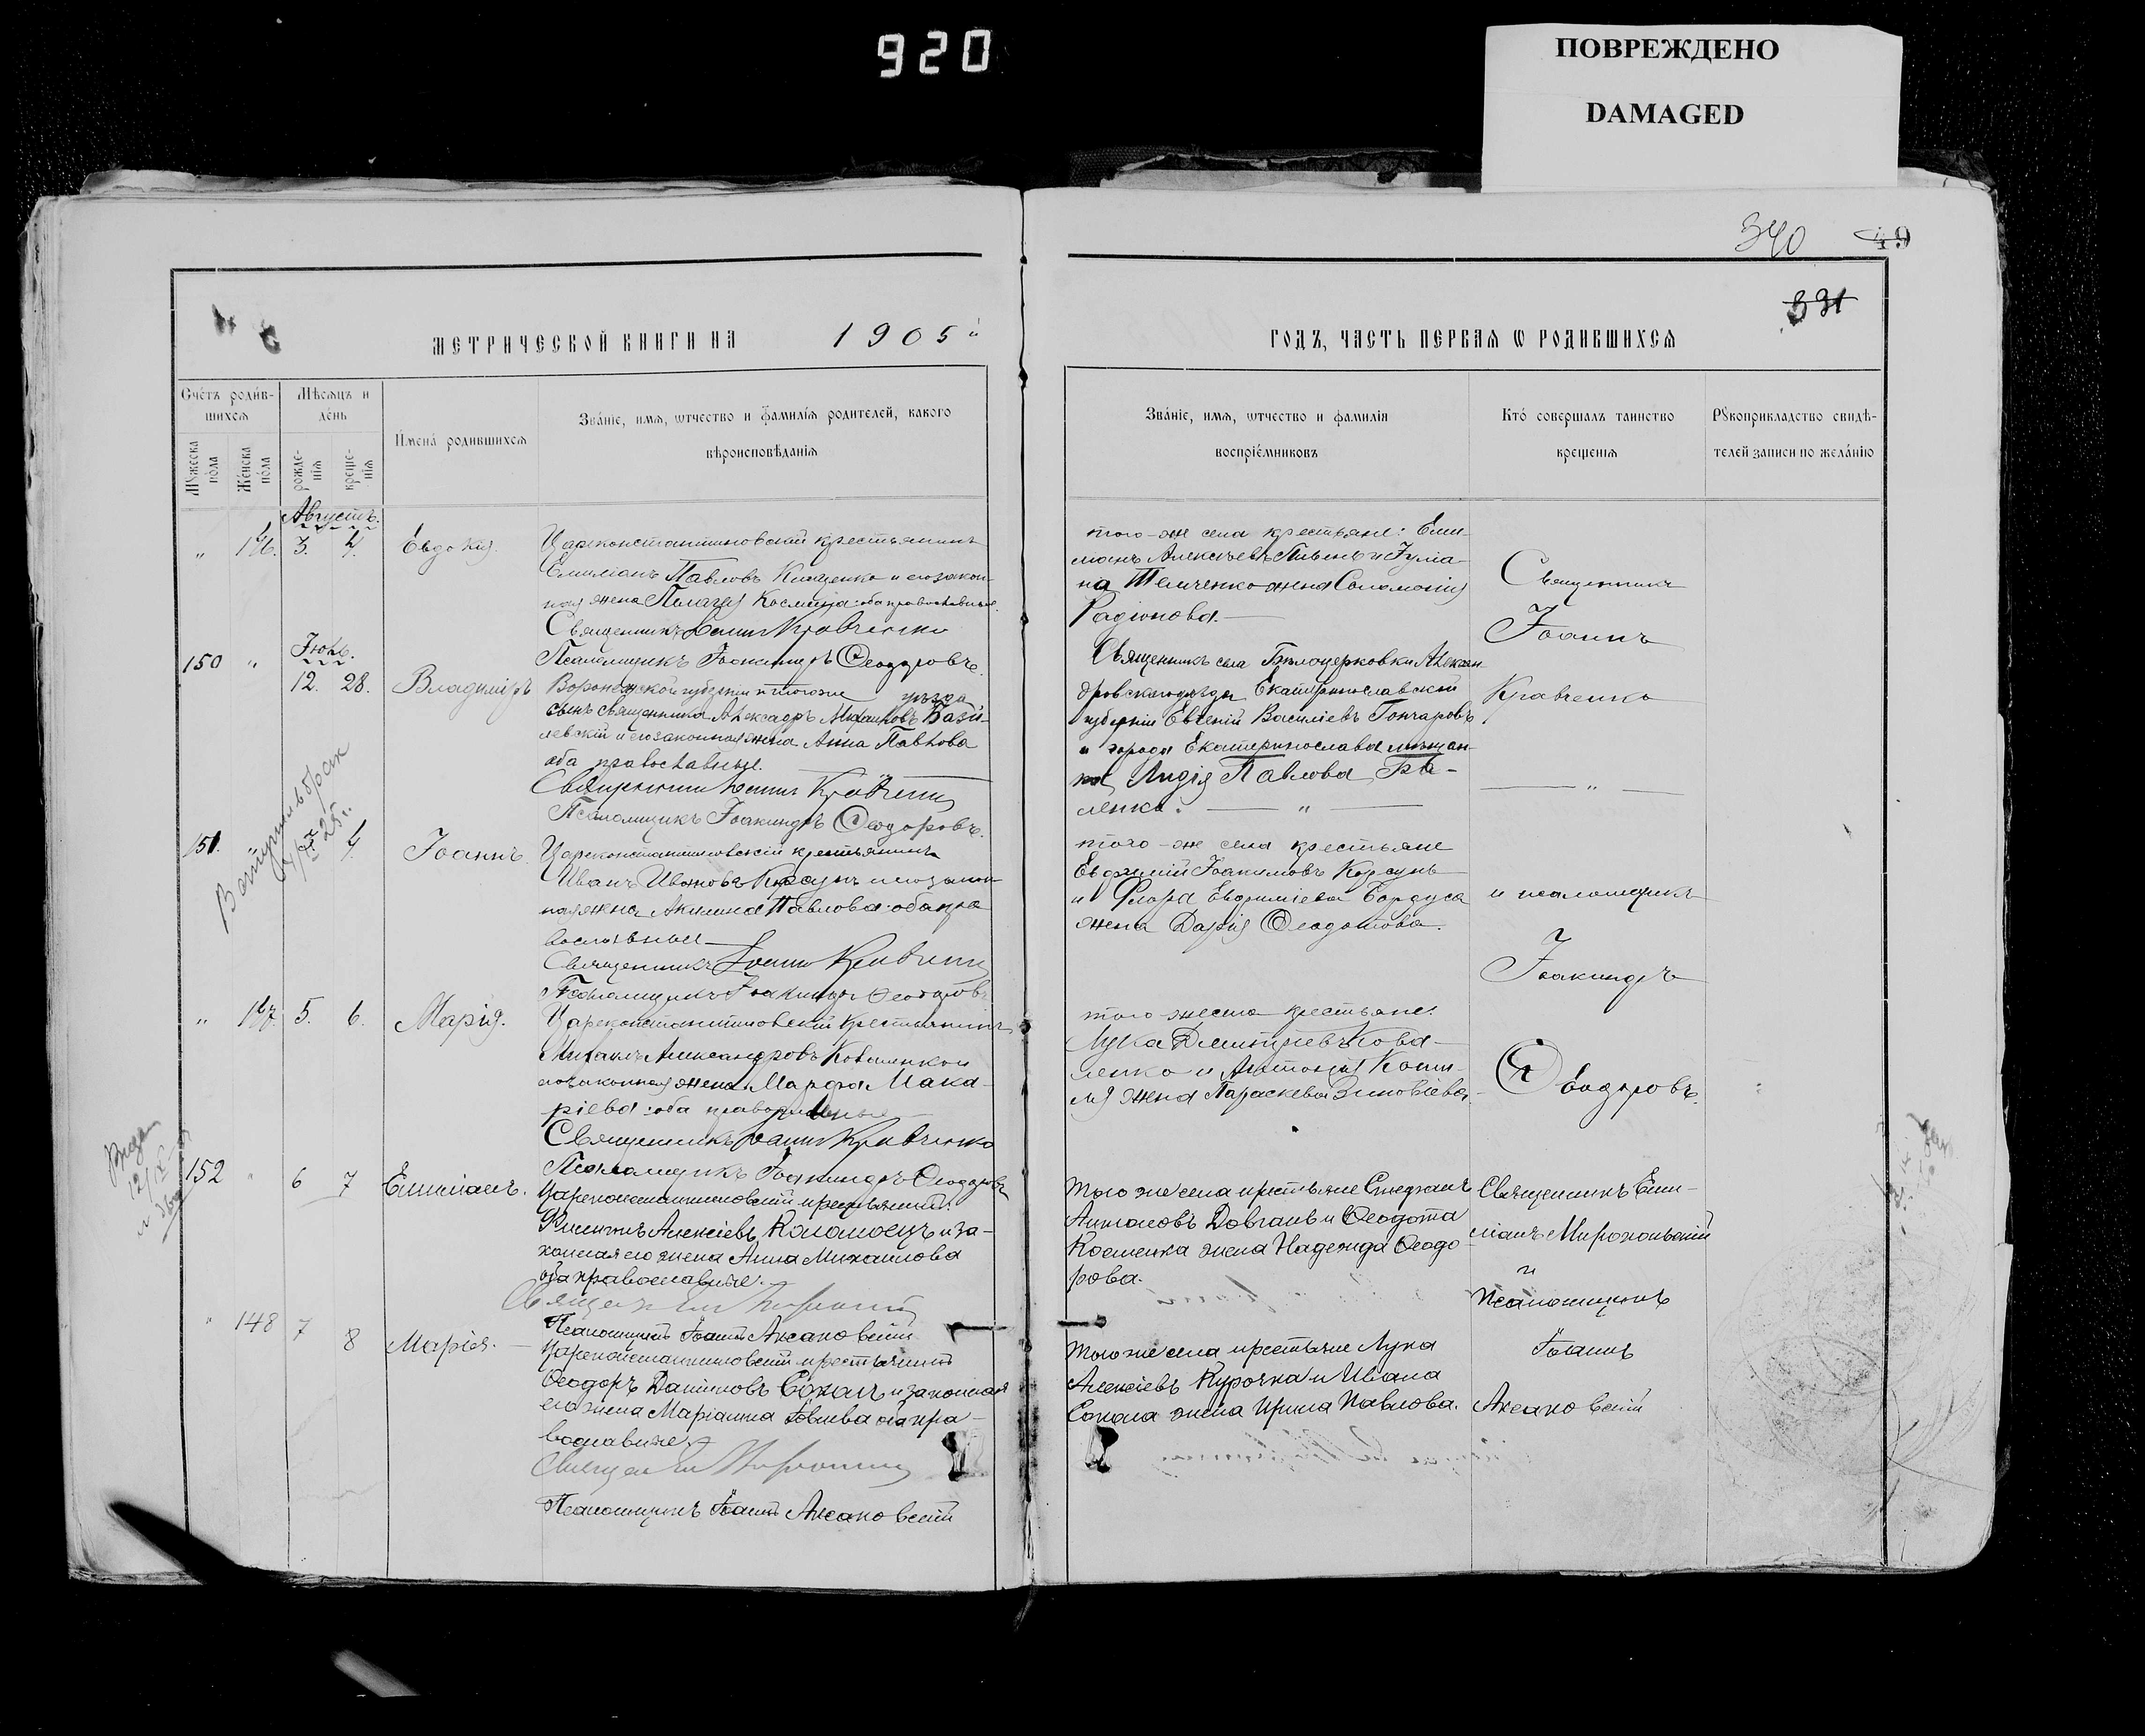 920
ПОВРЕЖДЕНО
DAMAGED
340 49
331
МЕТРИЧЕСКОЙ КНИГИ НА 1905
ГОДЪ, ЧАСТЬ ПЕРВАЯ Ѡ РОДИВШИХСЯ
Счётъ родив-
шихся
Мѣсяцъ и
день
Мужеска
пола
Женска
пола
рожде-
нія
креще-
нія
Имена родившихся
Званіе, имя, ѡтчество и фамилія родителей, какого
вѣроисповѣданія
Званіе, имя, ѡтчество и фамилія
воспріемниковъ
Кто совершалъ таинство
крещенія
Рꙋкоприкладство свидѣ-
телей записи по желанію
Августъ.
" 146. 3. 4. Евдокія.
Цареконстантиновскій крестьянинъ
Емиліанъ Павловъ и его закон-
ная жена Пелагея Космина: оба православные.
Священникъ Іоаннъ Кравченко
Псаломщикъ Іоакиндъ Ѳеодоровъ.
того-же села крестьяне: Еми-
ліанъ Алексѣевъ
на жена Соломонія
Радіонова.
Священникъ
Іоаннъ
Кравченко
"
и псаломщикъ
Іоакиндъ
Ѳеодоровъ.
Іюль.
150 " 12. 28. Владиміръ
Воронежской губерніи и тогоже уѣзда
сынъ священника Александръ Михаиловъ Бази-
левскій и его законная жена Анна Павлова
оба православные.
Священникъ Іоаннъ Кравченко
Псаломщикъ Іоакиндъ Ѳеодоровъ.
Священникъ села Бѣлоцерковки Алексан-
дровскаго уѣзда Екатеринославской
губерніи Евгеній Василіевъ Гончаровъ
и города Екатеринослава мѣщан-
ка Лидія Павлова Бѣ-
ленко. "
151. " 4. Іоаннъ.
Цареконстантиновскій крестьянинъ
Иванъ Ивановъ Корсунъ и его закон-
ная жена Акилина Павлова: оба пра-
вославные
Священникъ Іоаннъ Кравченко
Псаломщикъ Іоакиндъ Ѳеодоровъ
того-же села крестьяне
Евфимій Іоакимовъ Корсунъ
и Флора Евфиміева
жена Дарія Ѳеодотова.
Вступилъ бракъ
" 147. 5. 6. Марія.
Цареконстантиновскій крестьянинъ
Михаилъ Александровъ Коваленко и
его законная жена Марфа Мака-
ріева: оба православные
Священникъ Іоаннъ Кравченко
Псаломщикъ Іоакиндъ Ѳеодоровъ
того-же села крестьяне:
Лука Димитріевъ Кова-
ленко и Антонія
жена Параскева Зиновіева.
152 " 6 7 Емиліанъ.
Цареконстантиновскій крестьянинъ
Алексіевъ Коломоецъ и за-
конная его жена Анна Михаилова
оба православные.
Псаломщикъ Іоаннъ Аксаковскій
Того же села крестьяне Стефанъ
Довгань и Ѳеодота
Костенка жена Надежда Ѳеодо-
рова.
Священникъ Еми-
ліанъ
и
Псаломщикъ
Іоаннъ
Аксаковскій
" 148 7 8 Марія.
Цареконстантиновскій крестьянинъ
Ѳеодоръ Даниловъ Соколъ и законная
его жена Маріанна Іовлева оба пра-
вославные.
Псаломщикъ Іоаннъ Аксаковскій
Того же села крестьяне Лука
Алексіевъ Курочка и Ивана
Сокола жена Ирина Павлова.